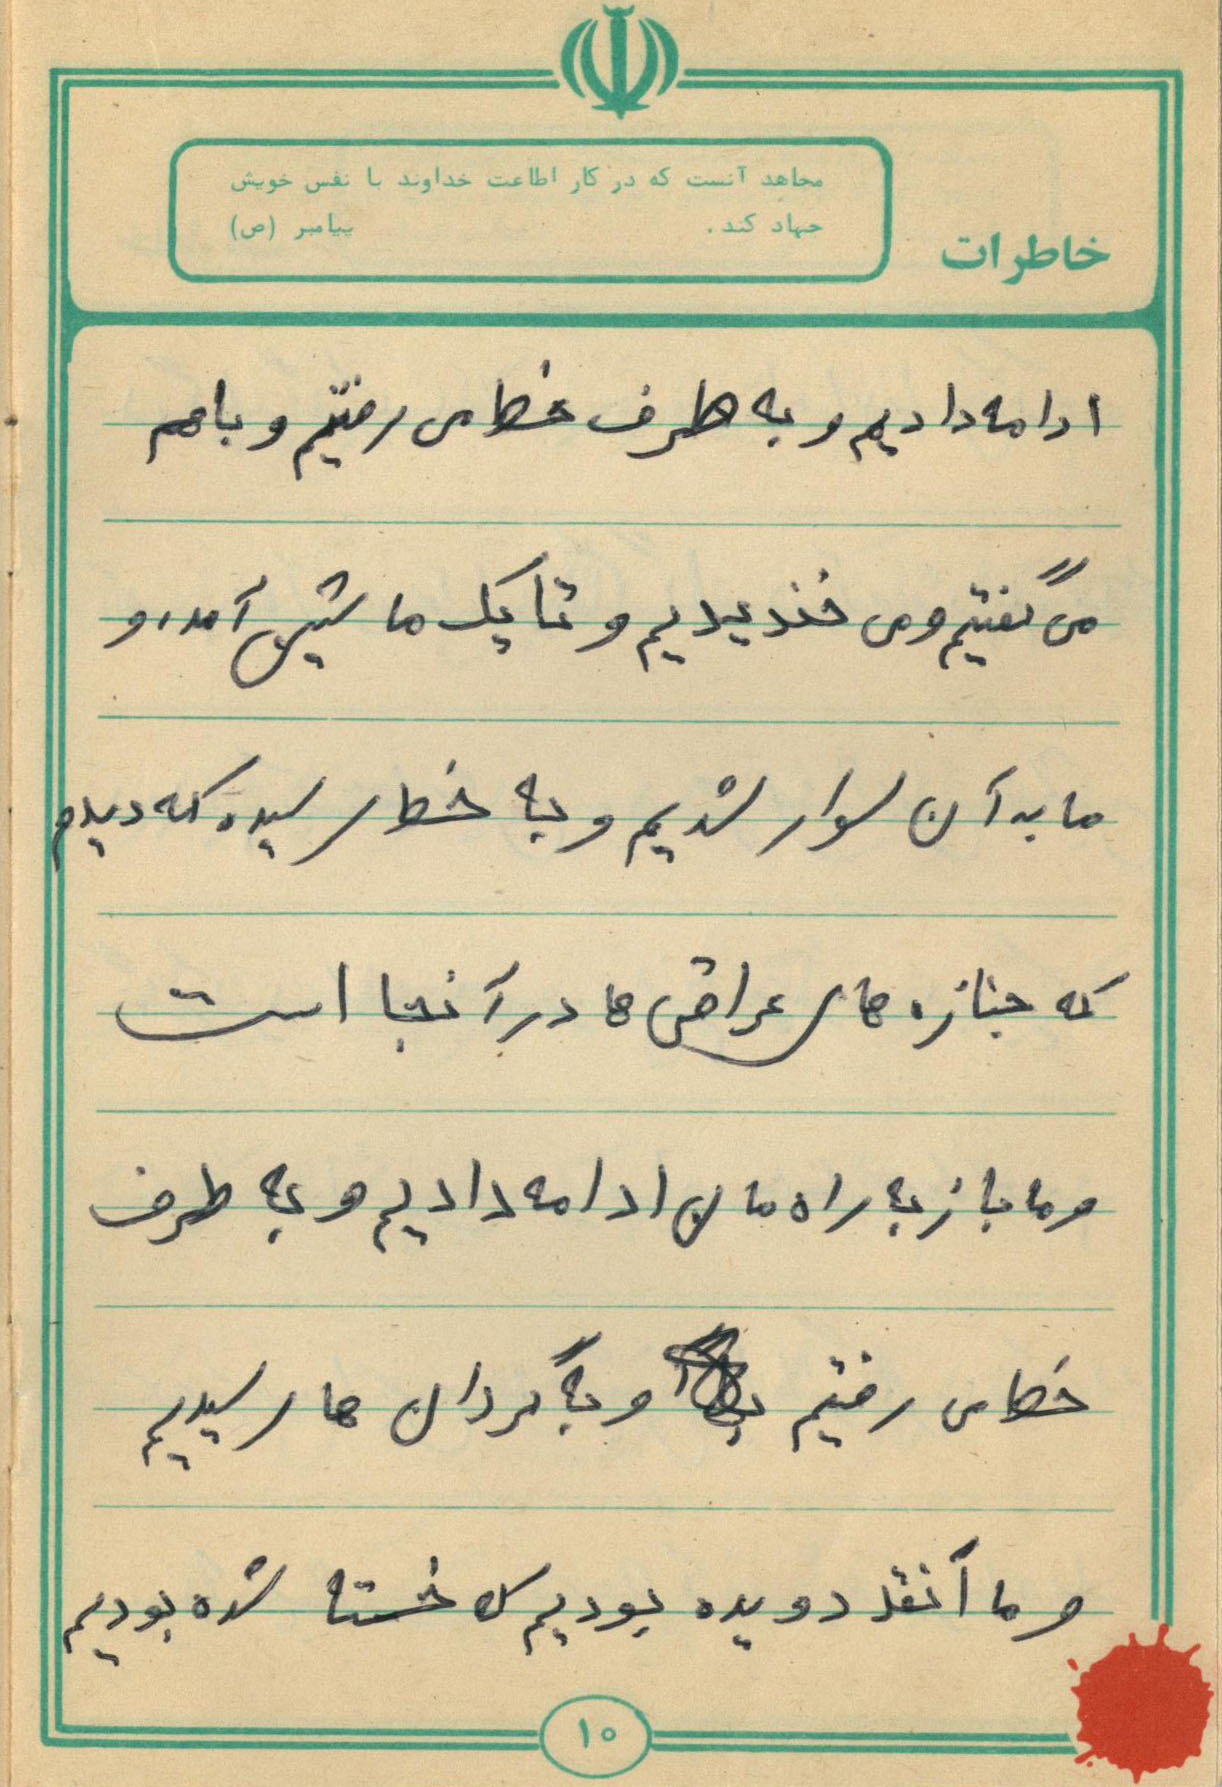 مجاهد آنست که در کار اطاعت خداوند با نفس خویش
جهاد کند. پیامبر (ص)
خاطرات
ادامه دادیم و به طرف خطا می رفتیم و با هم
می گفتیم و می خندیدیم و تا یک ماشینی آمد و
ما به آن سوار شدیم و به خط رسیده که دیدم
که جنازه های عراقی ها در آنجا است
و ما باز به راه مان ادامه دادیم و به طرف
خط می رفتیم و به گردان ها رسیدیم
و ما آنقد دویده بودیم که خسته شده بودیم
۱۰